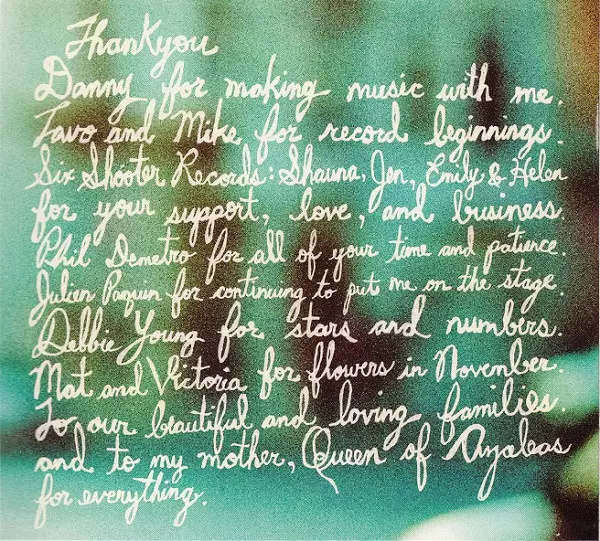 Thankyou
Danny for making music with me.
Tavo and Mike for record beginnings.
Six Shooter Records: Shauna, Jen, Emily & Helen
for your support, love, and business.
Phil Demetro for all of your time and patience.
Julien Paquin for continuing to put me on the stage.
Debbie Young for stars and numbers.
Mat and Victoria for flowers in November.
To our beautiful and loving families.
and to my mother, Queen of Azaleas
for everything.